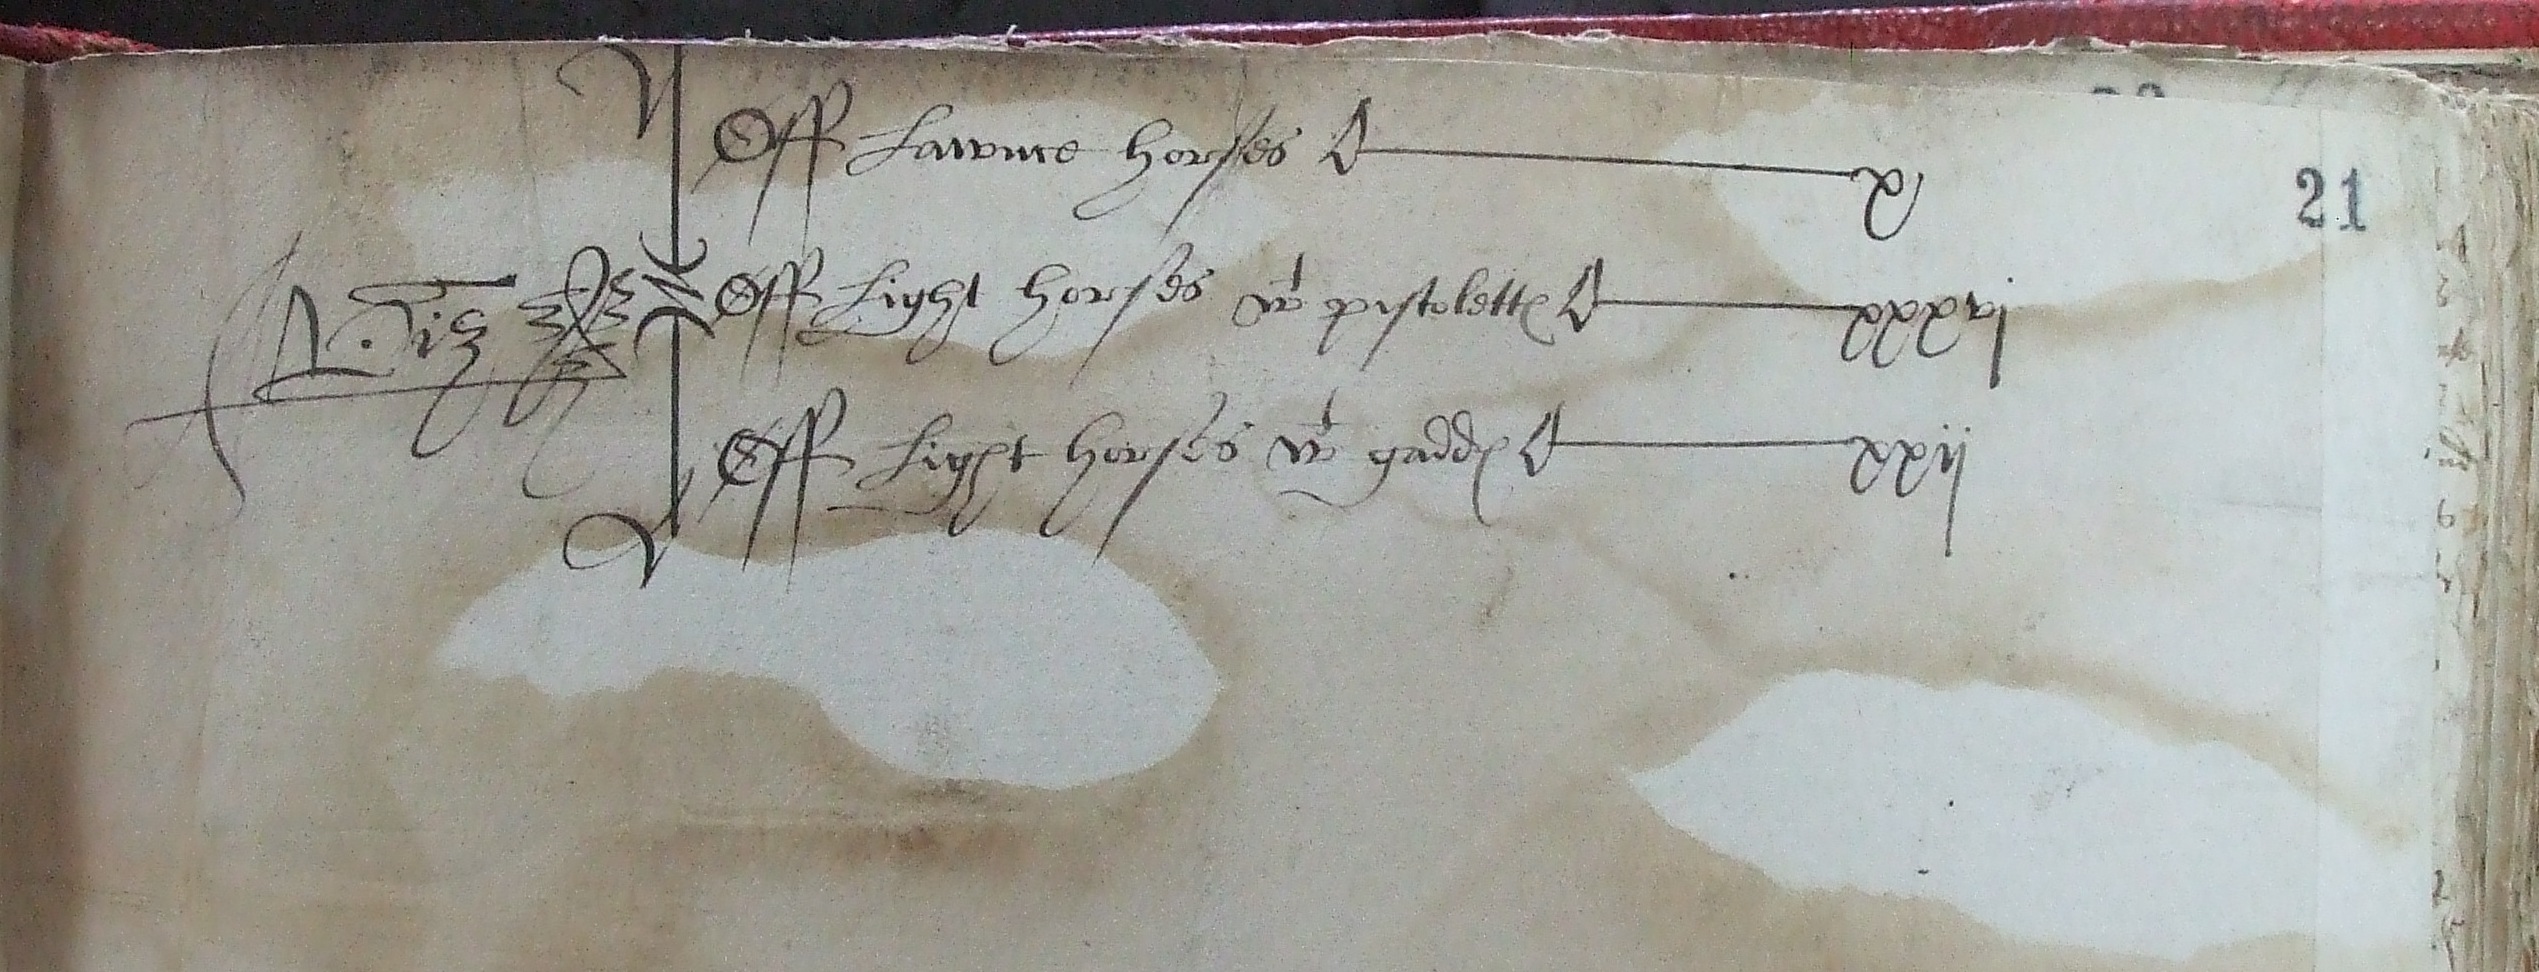 Off Launce horses x
21
Viz Off Light horses wt pistolettes xxxvj
Off Light horses wt gaddes xxij